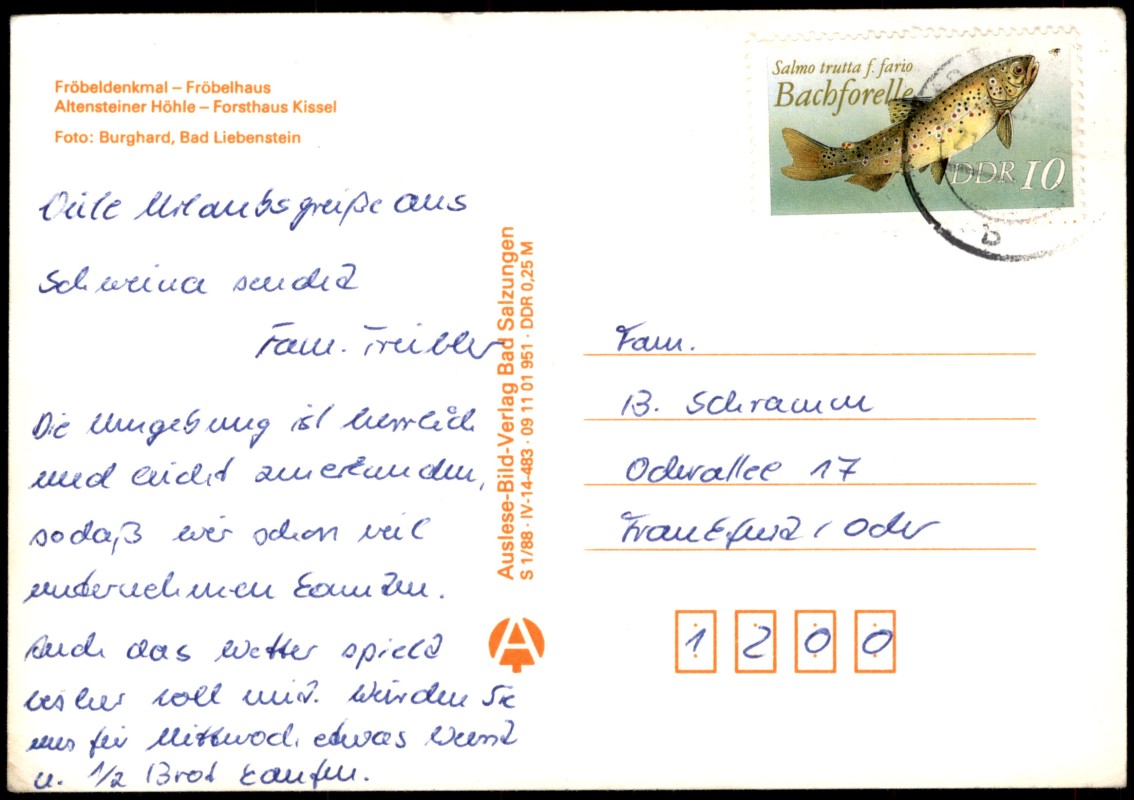 Fröbeldenkmal – Fröbelhaus
Altensteiner Höhle – Forsthaus Kissel
Foto: Burghard, Bad Liebenstein
Salmo trutta f. fario
Bachforelle
DDR 10
b
Viele Urlaubsgrüße aus
Schweina sendet
Fam.
Die Umgebung ist herrlich
und leicht zu erkunden,
sodaß wir schon viel
unternehmen konnten.
Auch das Wetter spielt
bisher voll mit. Würden Sie
uns für Mittwoch etwas Wurst
u. 1/2 Brot kaufen.
Auslese-Bild-Verlag Bad Salzungen
S 1/88 · IV-14-483 · 09 11 01 951 · DDR 0,25 M
A
Fam.
B. Schramm
Oderallee 17
Frankfurt / Oder
1 2 0 0